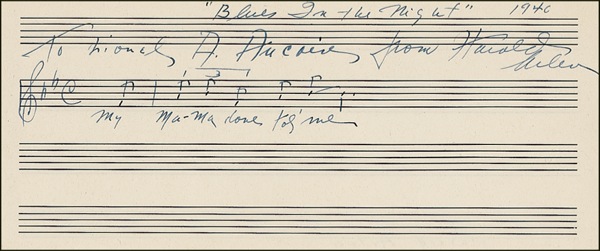 "Blues In the Night" 1940
To Lionel A. from Harold
Arlen
My Ma-Ma done tol' me